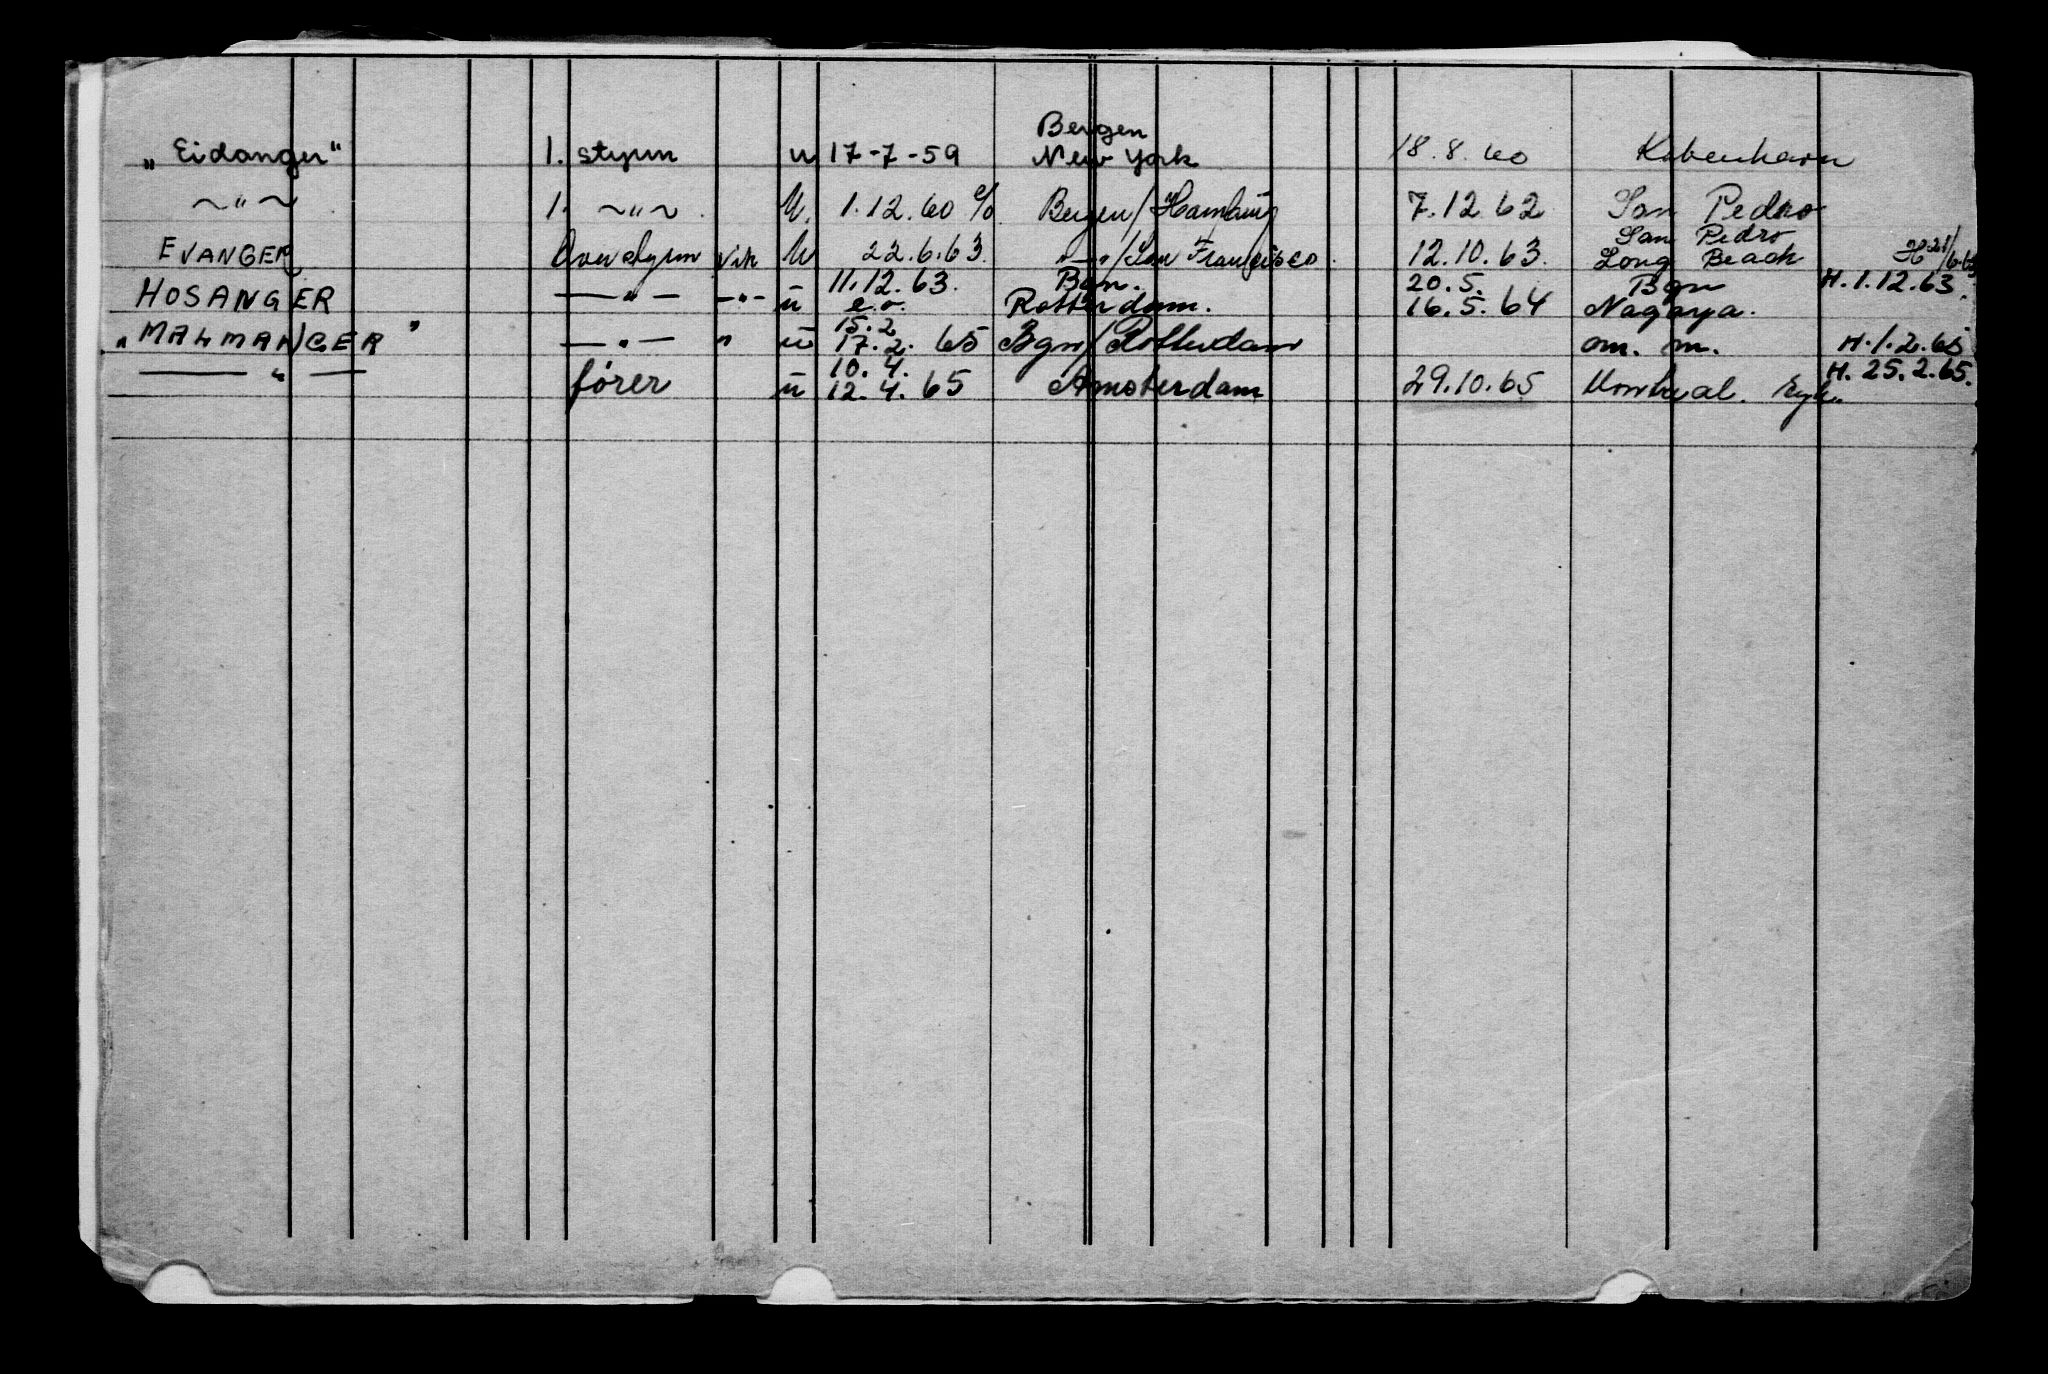 Bergen
„Eidanger" 1. styrm u 17-7-59 New York 18.8.60 København
~"~ 1. ~"~ U. 1.12.60 % Bergen/Hamburg 7.12.62 San Pedro
San Pedro
EVANGER Overstyrm vik U 22.6.63. —"—/San Francisco. 12.10.63. Long Beach
11.12.63. Bgn. 20.5. Bgn H.1.12.63.
HOSANGER —"— -"- u e.o. Rotterdam. 16.5.64 Nagoya.
15.2
„MALMANGER" —"— " u 17.2. 65 Bgn/Rotterdam om. m. H.1.2.65
10.4. H. 25.2.65.
—"— fører u 12.4.65 Amsterdam 29.10.65 Montreal.